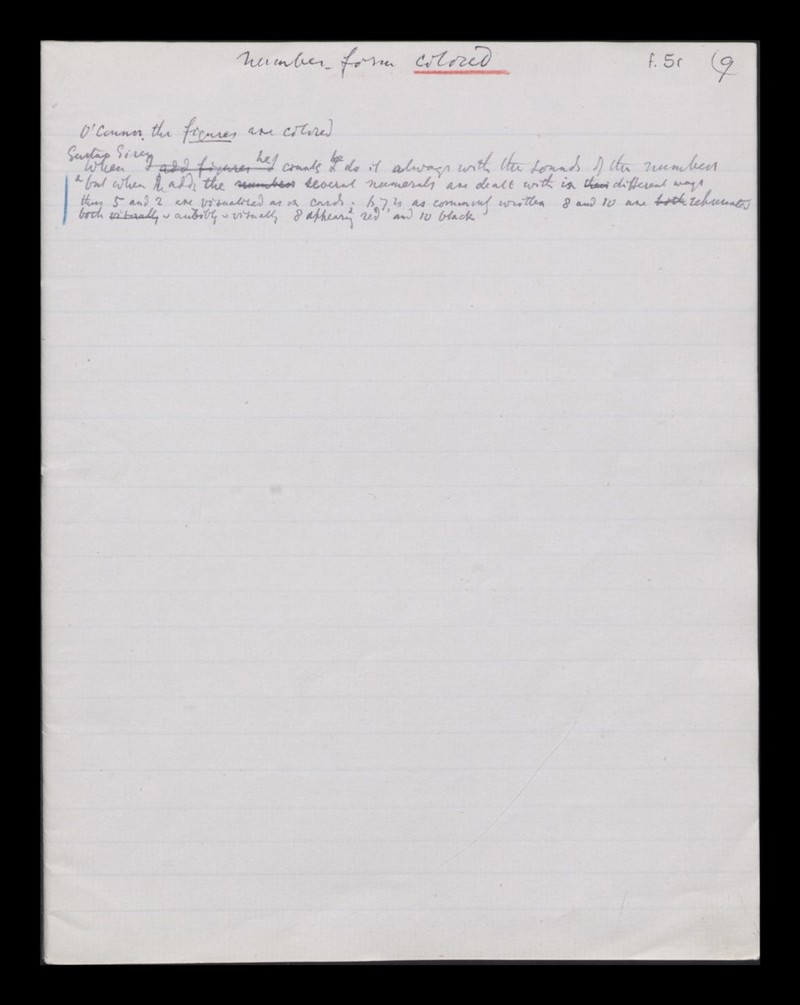 number-form colored
f. 5r (9
O'Connor. the figures are colored
he
When I add figures I counts do it always with the sounds of the numbers
but when he adds the numbers several numerals are dealt with in their different ways
thus 5 and 2 are visualized as on cards. 6, 7, as commonly written 8 and 10 are both
both visually audibly visually 8 appearing red and 10 black